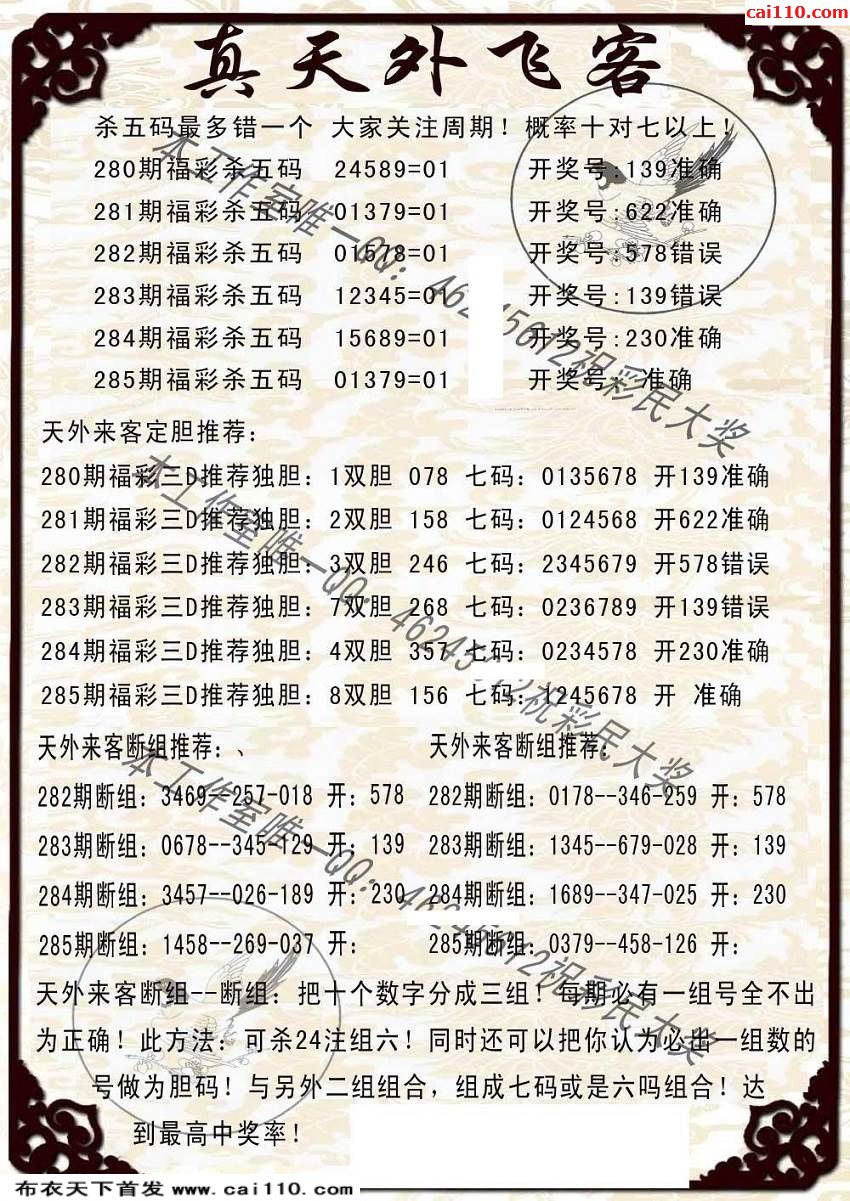 cai110.com
真天外飞客
杀五码最多错一个 大家关注周期！概率十对七以上！
280期福彩杀五码 24589=01 开奖号:139准确
281期福彩杀五码 01379=01 开奖号:622准确
282期福彩杀五码 01578=01 开奖号:578错误
283期福彩杀五码 12345=01 开奖号:139错误
284期福彩杀五码 15689=01 开奖号:230准确
285期福彩杀五码 01379=01 开奖号: 准确
天外来客定胆推荐：
280期福彩三D推荐独胆：1双胆 078 七码：0135678 开139准确
281期福彩三D推荐独胆：2双胆 158 七码：0124568 开622准确
282期福彩三D推荐独胆：3双胆 246 七码：2345679 开578错误
283期福彩三D推荐独胆：7双胆 268 七码：0236789 开139错误
284期福彩三D推荐独胆：4双胆 357 七码：0234578 开230准确
285期福彩三D推荐独胆：8双胆 156 七码：1245678 开 准确
天外来客断组推荐：、 天外来客断组推荐：
282期断组：3469--257-018 开：578 282期断组：0178--346-259 开：578
283期断组：0678--345-129 开：139 283期断组：1345--679-028 开：139
284期断组：3457--026-189 开：230 284期断组：1689--347-025 开：230
285期断组：1458--269-037 开： 285期断组：0379--458-126 开：
天外来客断组--断组：把十个数字分成三组！每期必有一组号全不出
为正确！此方法：可杀24注组六！同时还可以把你认为必出一组数的
号做为胆码！与另外二组组合，组成七码或是六吗组合！达
到最高中奖率！
本工作室唯一QQ：46245612祝彩民大奖
本工作室唯一QQ：46245612祝彩民大奖
本工作室唯一QQ：46245612祝彩民大奖
布衣天下首发 www.cai110.com